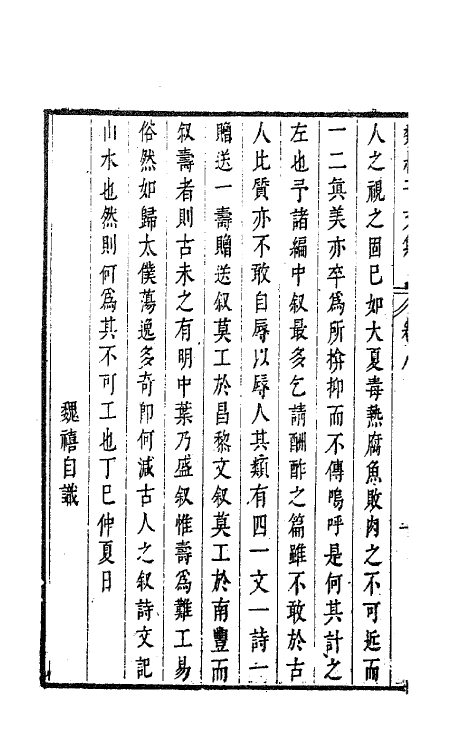 人之視之固已如大夏毒熱腐魚敗肉之不可近而
一二眞美亦卒為所揜抑而不傳嗚呼是何其計之
左也予諸編中叙最多乞請酬酢之篇雖不敢於古
人比質亦不敢自辱以辱人其類有四一文一詩一
贈送一壽贈送叙莫工於昌黎文叙莫工於南豐而
叙壽者則古未之有明中葉乃盛叙惟壽為難工易
俗然如歸太僕蕩逸多奇卽何減古人之叙詩文記
山水也然則何為其不可工也丁巳仲夏日
魏禧自識